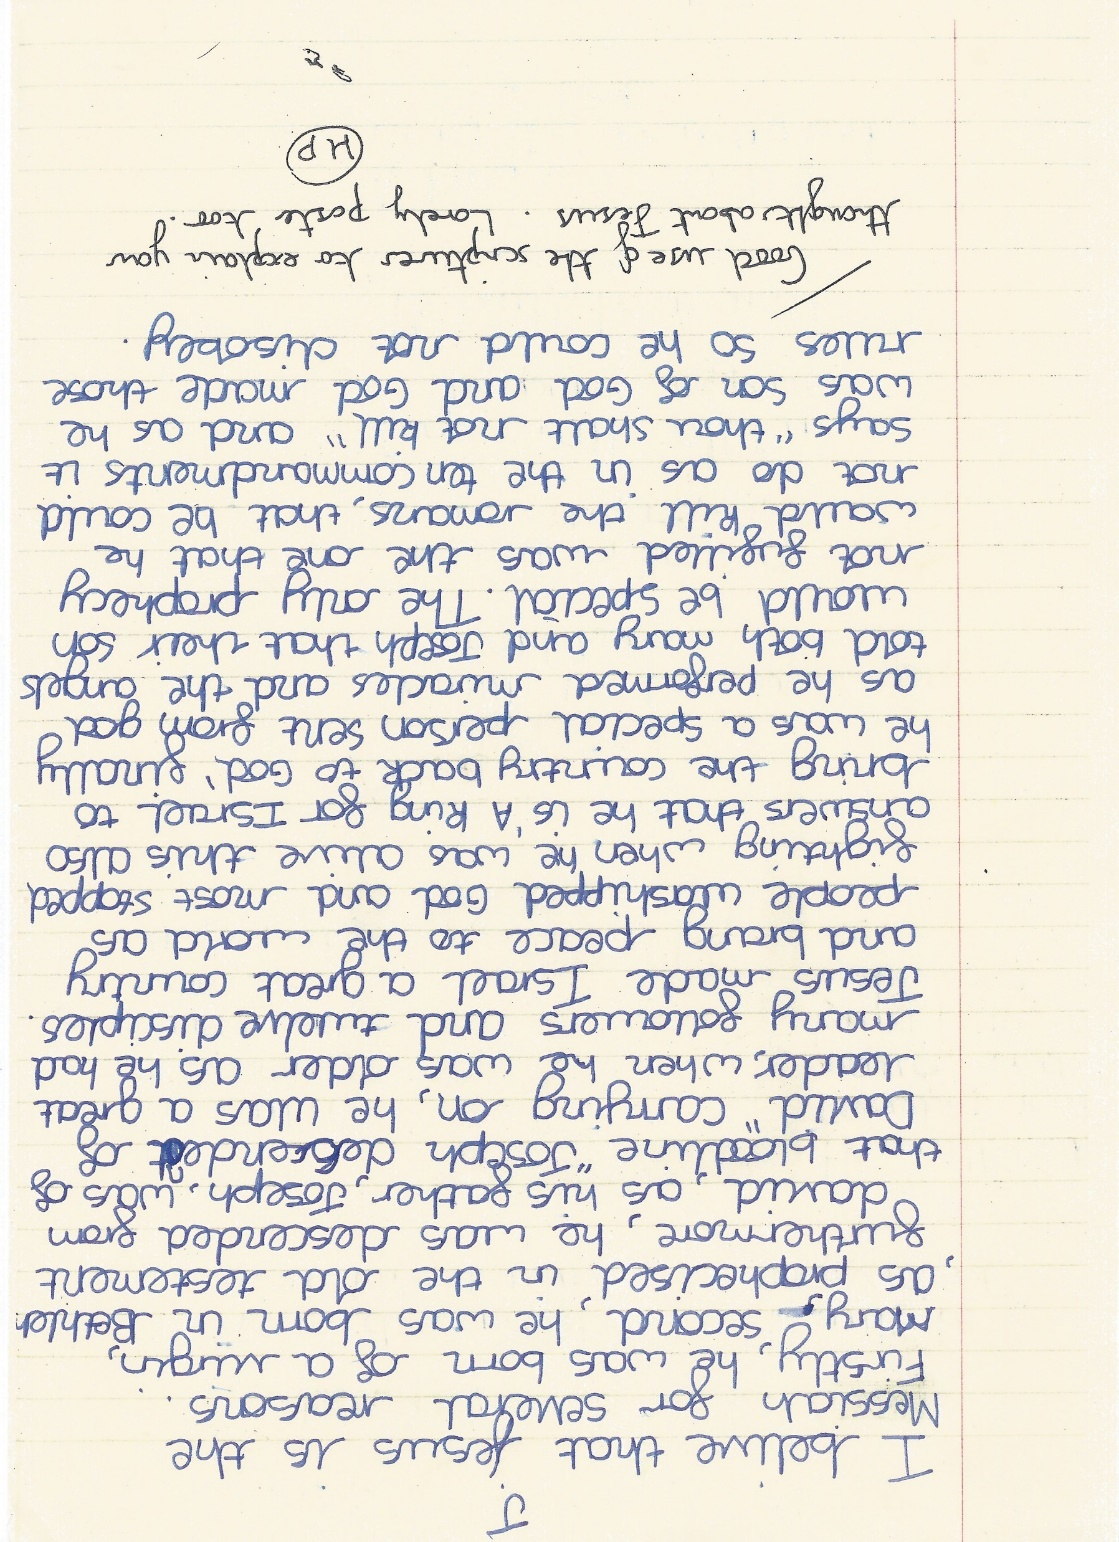 J
I belive that jesus is the
Messiah for several reasons.
Firstly, he was born of a virgin,
Mary, second, he was born in Bethleh
, as prophecised in the old testement
furthermore, he was descended from
david, as his father, Joseph, was of
that bloodline "Joseph descendet of
David" carrying on, he was a great
leader, when he was older as he had
many followers and twelve disciples.
Jesus made Israel a great country
and braung peace to the world as
people worshipped God and most stopped
fighting when he was alive this also
answers that he is 'A King for Israel to
bring the country back to God' finally
he was a special person sent from god
as he performed miracles and the angels
told both mary and Joseph that their son
would be special. The only prophecy
not fufilled was the one that he
would kill the romans, that he could
not do as in the ten commandments it
says "thou shalt not kill" and as he
was son of God and God made those
rules so he could not disobey.
Good use of the scriptures to explain your
thoughts about Jesus. Lovely poster too.
HP